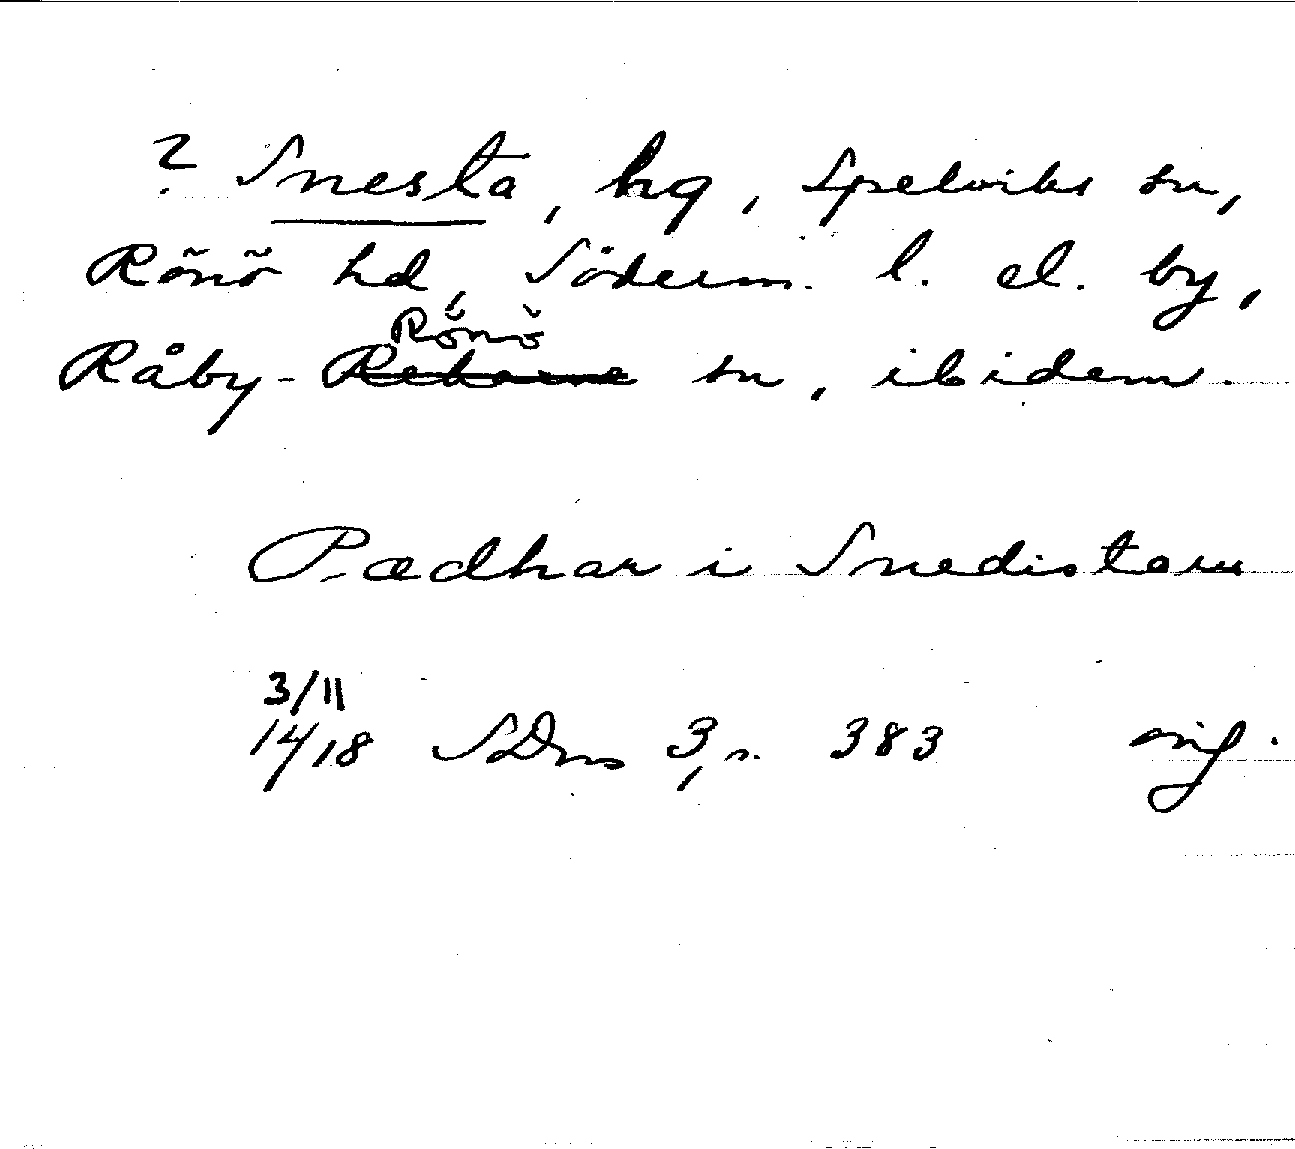 ? Snesta, hg, Spelviks sn,
Rönö hd, Söderm. l. el. by,
Rönö
Råby-Rekarne sn, ibidem.
Pædhar i Snedistom
3/11
14/18 SDns 3, s. 383 orig.